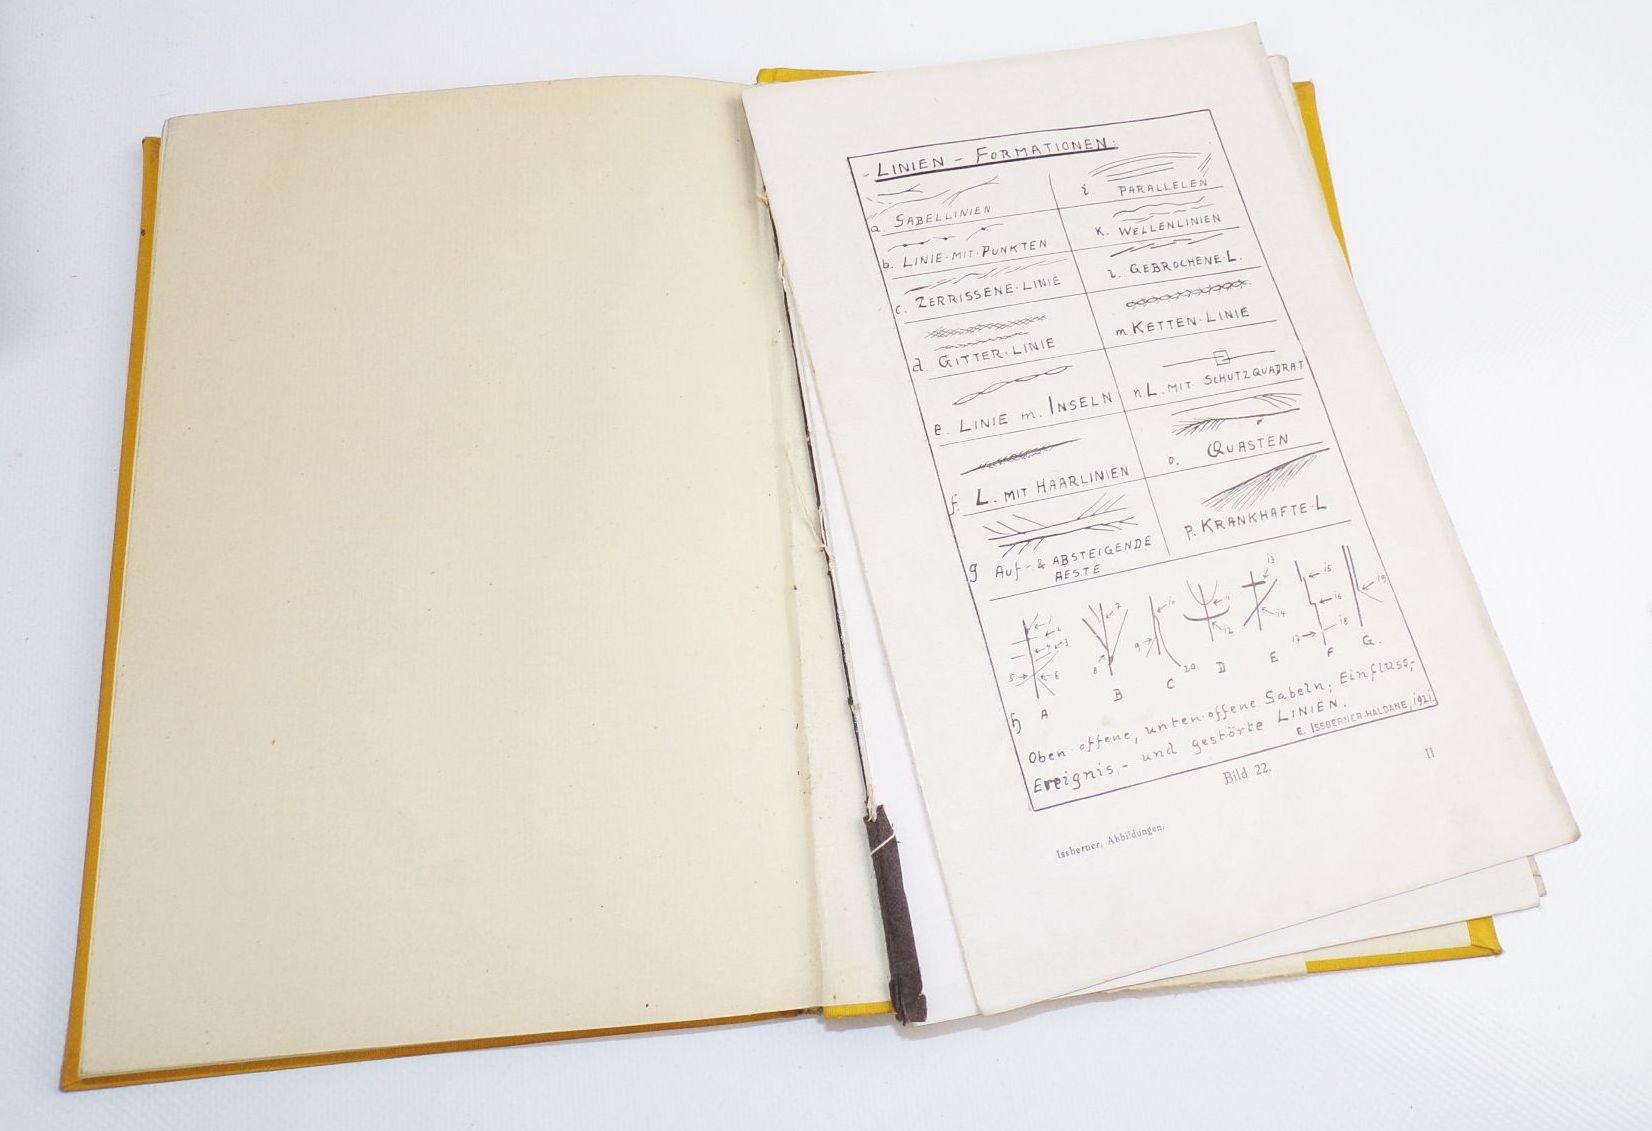 - LINIEN - FORMATIONEN:
a. GABELLINIEN
b. LINIE·MIT·PUNKTEN
c. ZERRISSENE·LINIE
d. GITTER·LINIE
e. LINIE m. INSELN
f. L. MIT HAARLINIEN
g Auf- & ABSTEIGENDE
AESTE
i. PARALLELEN
K. WELLENLINIEN
l. GEBROCHENE·L.
m. KETTEN·LINIE
n. L. MIT· SCHUTZQUADRAT
o. QUASTEN
p. KRANKHAFTE·L
1 2 3 4 5 6
7 8
10 9 20
11 12
13 14
15 16 17 18
19
h A B C D E F G.
Oben·offene, unten·offene Gabeln; Einfluss,-
Ereignis,- und gestörte LINIEN.
E. ISSBERNER-HALDANE, 1921.
Bild 22.
II
Issberner, Abbildungen.